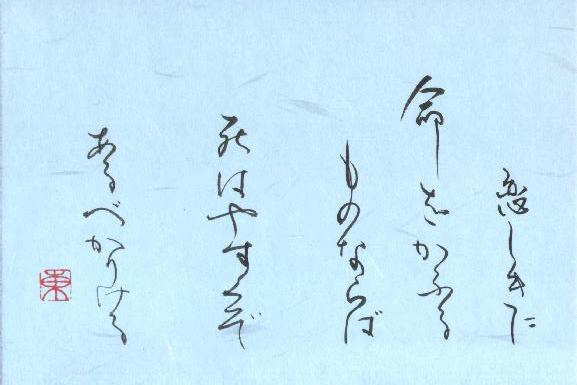 恋しきに
命をかふる
ものならば
死はやすくぞ
あるべかりける
東